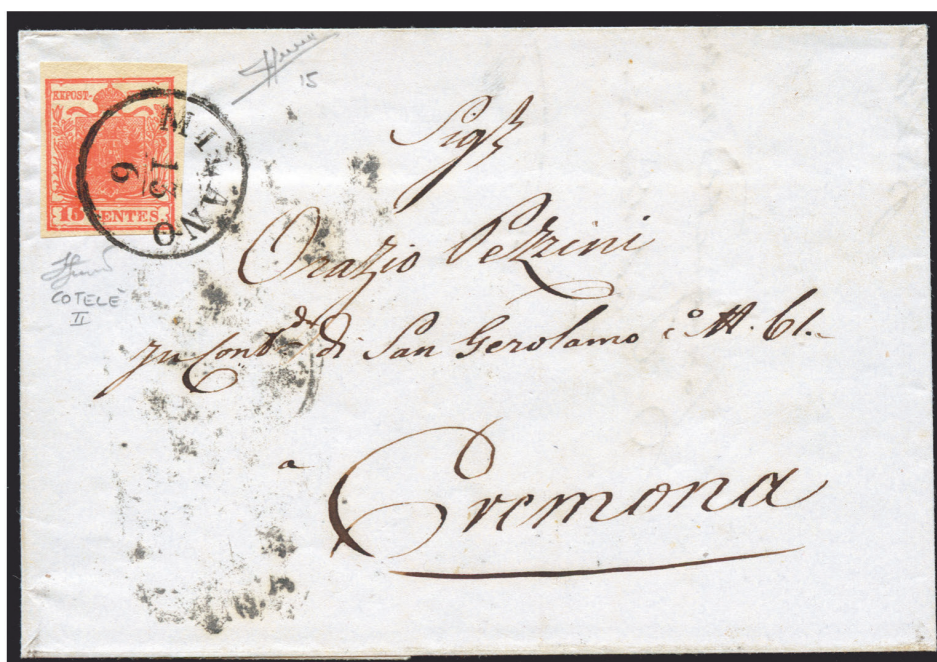 KKPOST-
15 CENTES.
MILANO
13
6
15
COTELÈ
II
Sig.r
Orazio Pezzini
di San Gerolamo c.o N. 61.
a
Cremona